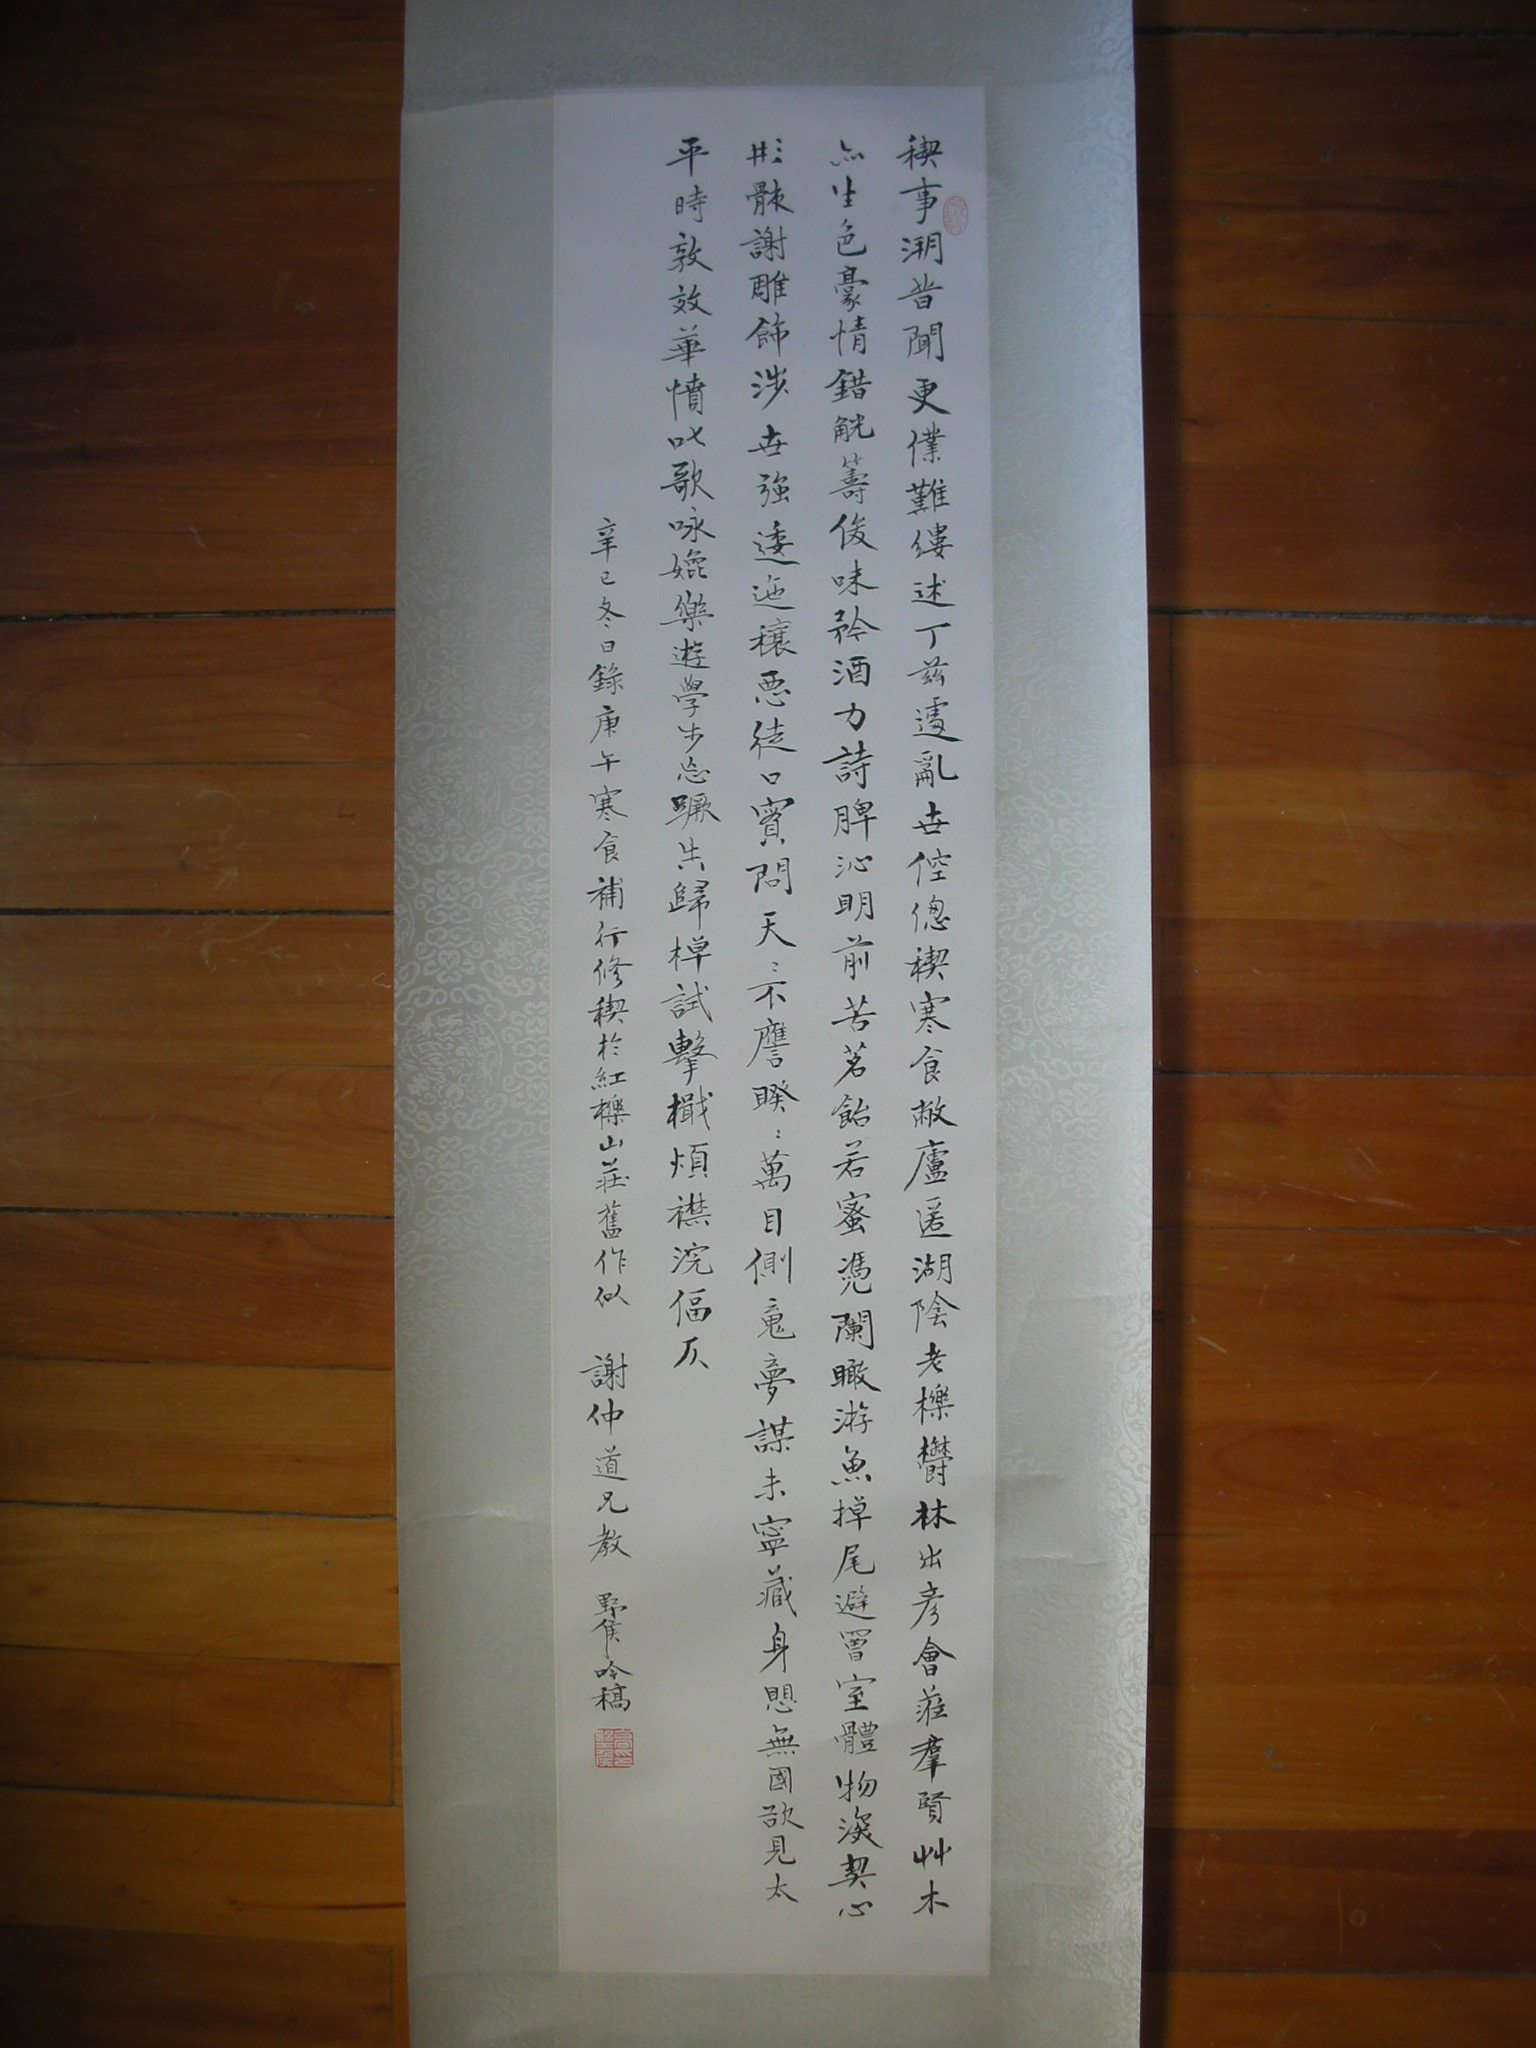 禊事溯昔聞更僕難縷述丁茲遘亂世倥傯禊寒食敝廬遥湖陰老櫟鬱林出彥會蒞羣賢艸木
亦生色豪情錯觥籌俊味矜酒力詩脾沁明前苦茗飴若蜜憑闌瞰游魚掉尾避曾室體物深契心
形骸謝雕飾涉世強逶迤穰惡徒口實問天〻不譍睽〻萬目側竟夢謀未寧藏身愳無國欲見太
平時敦效華憤叱歌咏媲樂遊學步忘蹶失歸棹試擊檝煩襟浣偪仄
辛巳冬日錄庚午寒食補行修禊於紅櫟山莊舊作似 謝仲道兄教 野侯吟稿